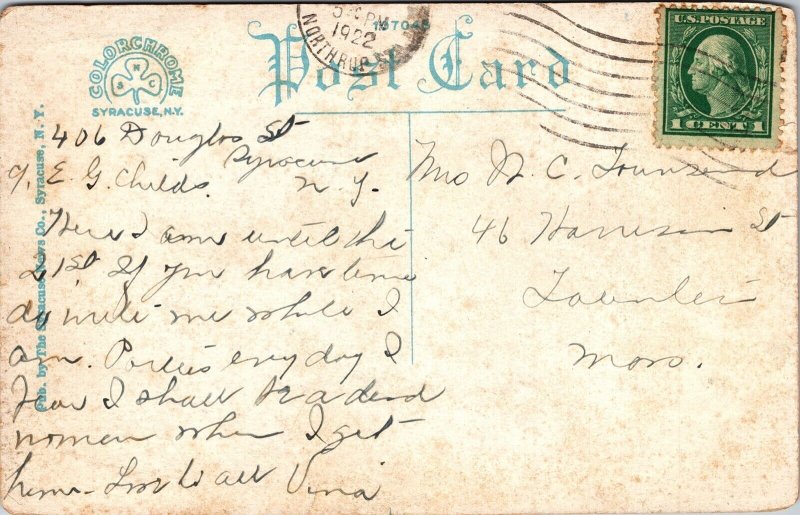 5 PM
1922
NORTHRUP
137048
U.S. POSTAGE
1 CENT 1
COLORCHROME
S N C
SYRACUSE, N.Y.
Post Card
Pub. by The Syracuse News Co., Syracuse, N. Y.
406 Douglas St
Syracuse
c/o E. G. Childs. N. Y.
Here I am until the
21st If you have time
do write me while I
am. Parties every day I
fear I shall be a dead
woman when I get
home - Love to all
Mrs N. C. Townsend
46 Harrison St
Mass.